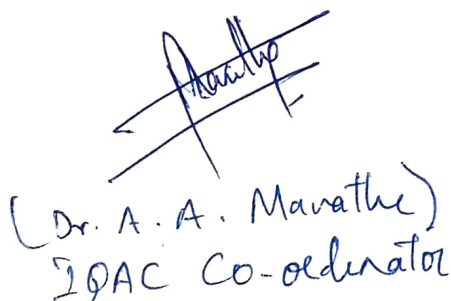 Marathe
(Dr. A. A. Marathe)
IQAC Co-ordinator